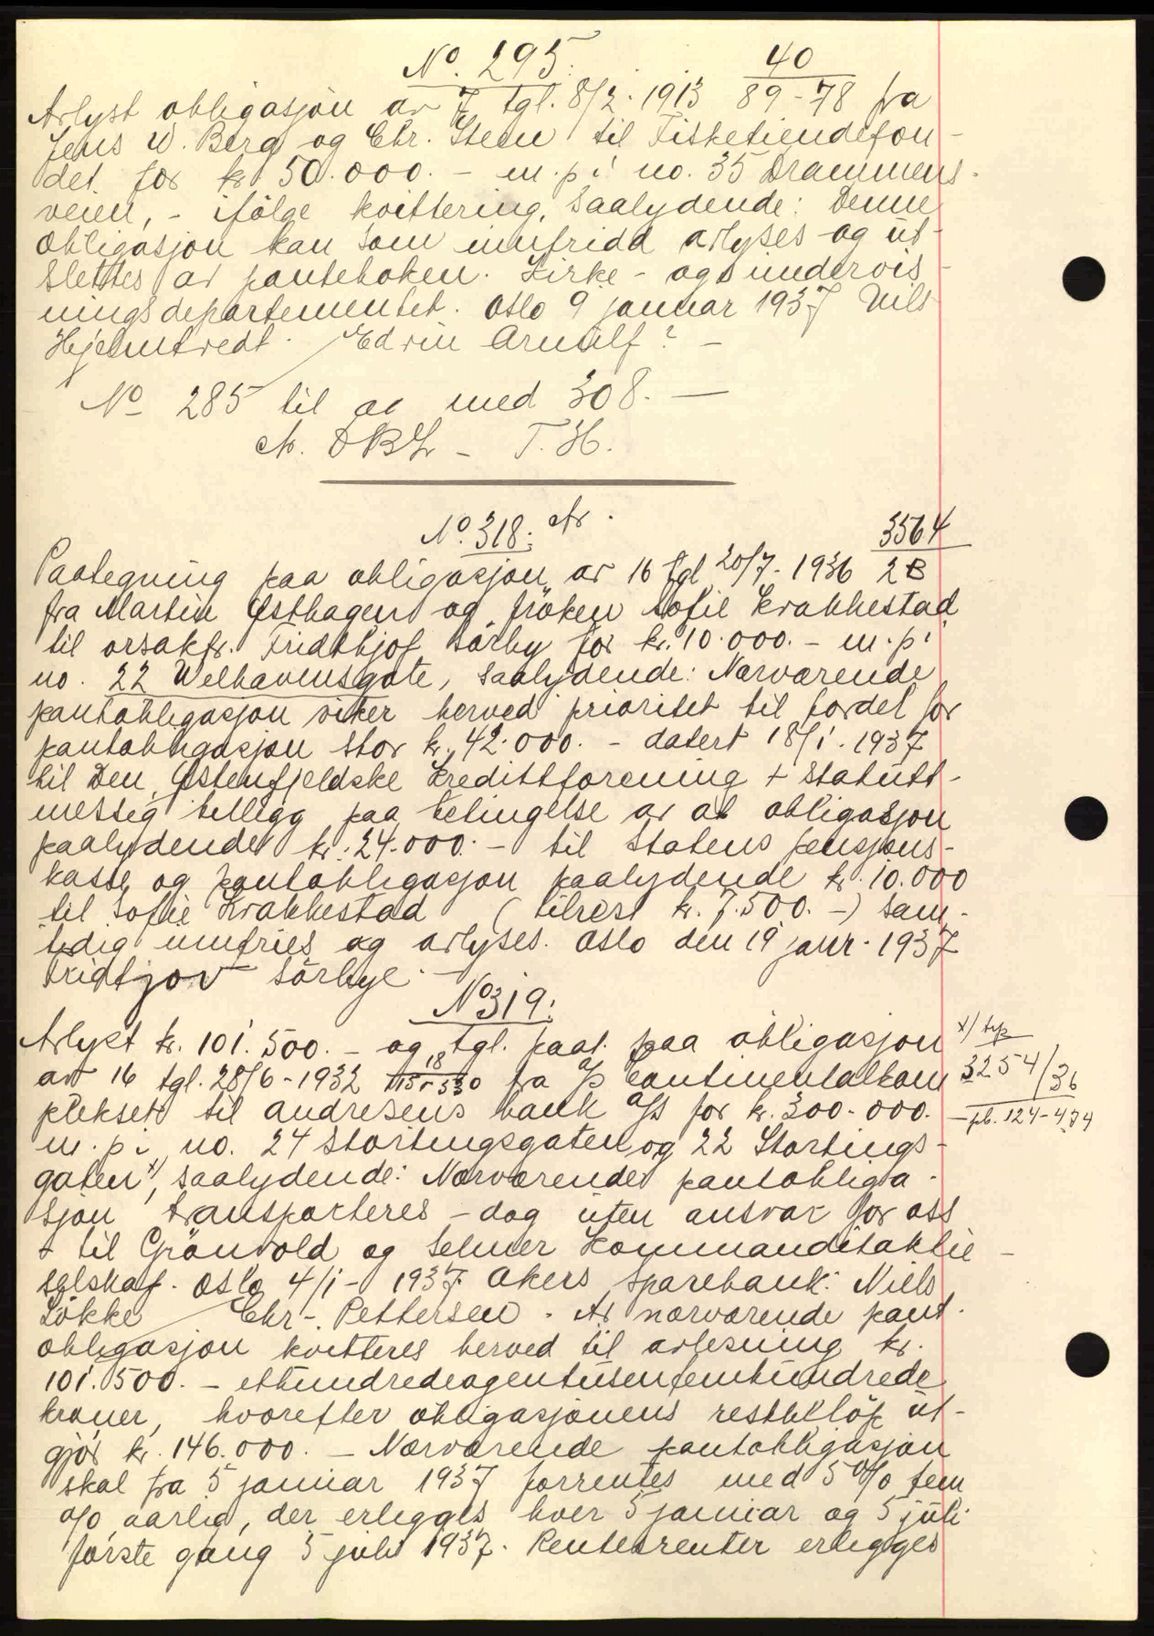 No. 295.
40
Avlyst obligasjon av 7 tgl. 8/2. 1913 89-78 fra
Jens W. Berg og Chr. Steen til Fisketiendefon-
det for kr 50.000.- m. p i no. 35 Drammens-
veien, - ifölge kvittering, saalydende: Denne
obligasjon kan som innfridd avlyses og ut-
slettes av panteboken. Kirke- og undervis-
ningsdepartementet. Oslo 9 januar 1937 Nils
Hjelmtvedt. / Edvin ?-
No 285 til og med 308.-
T. H.
No. 318.
3564
Paategning paa obligasjon av 16 tgl 20/7- 1936 2B
fra Martin Østhagen og fröken Sofie Krakkestad
til orsakfr. Fridthjof Sörby for kr. 10.000.- m. p i
no. 22 Welhavensgate, saalydende: Nærværende
pantobligasjon viker herved prioritet til fordel for
pantobligasjon stor kr. 42.000.- datert 18/1. 1937
til Den Østenfjeldske Kredittforening + statutt-
messig tillegg paa betingelse av at obligasjon
paalydende kr. 24.000.- til Statens pensjons-
kasse og pantobligasjon paalydende kr. 10.000
til Sofie Krakkestad (tilrest kr. 7.500.-) sam-
tidig innfries og avlyses. Oslo den 19 janr. 1937
Fridtjov Sörbye.-
No 319.
Avlyst kr. 101.500.- og tgl. paat. paa obligasjon
x/ typ
av 16 tgl. 28/6-1932 18/115-530 fra A/S Continentalkom
3254/36
plekset til Andresens bank A/S for kr. 300.000.
- pb. 124-474
m. p i no. 24 Stortingsgaten og 22 Stortings-
gaten x/, saalydende: Nærværende pantobliga-
sjon transporteres - dog uten ansvar for oss
- til Grönvold og Selmer Kommanditaktie-
selskap. Oslo 4/1- 1937. Akers Sparebank: Niels
Lökke / Chr. Pettersen. Av nærværende pant-
obligasjon kvitteres herved til avlesning kr.
101.500.- etthundredeogentusenfemhundrede
kroner, hvorefter obligasjonens restbelöp ut-
gjör kr. 146.000.- Nærværende pantobligasjon
skal fra 5 januar 1937 forrentes med 5 o/o fem
o/o aarlig, der erlegges hver 5 januar og 5 juli
förste gang 5 juli 1937. Rentesrenter erlegges